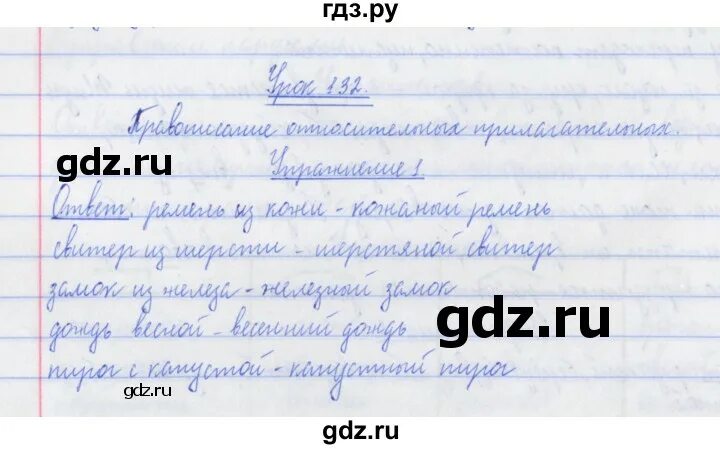 гдз.ру
Урок 132.
Правописание относительных прилагательных.
gdz.ru
Упражнение 1.
Ответ: ремень из кожи - кожаный ремень
свитер из шерсти - шерстяной свитер
замок из железа - железный замок
дождь весной - весенний дождь
gdz.ru
пирог с капустой - капустный пирог
gdz.ru
gdz.ru